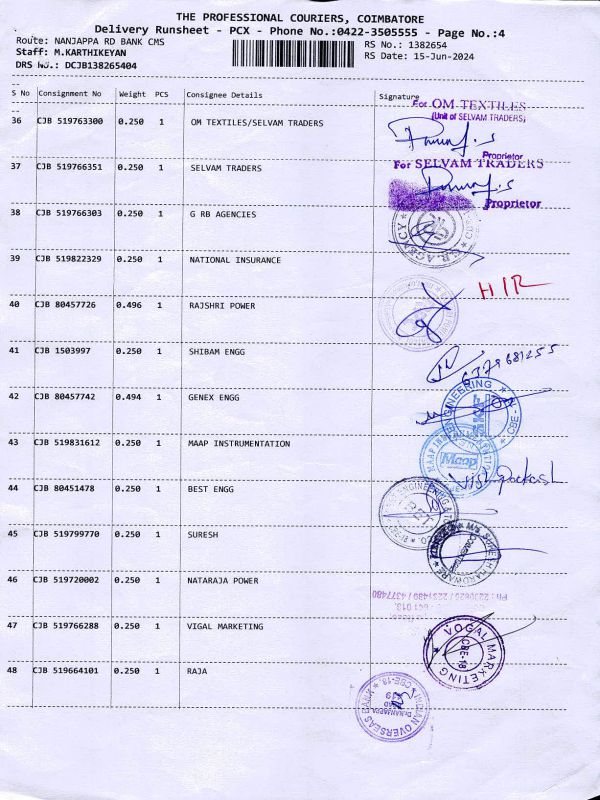 THE PROFESSIONAL COURIERS, COIMBATORE
Delivery Runsheet - PCX - Phone No.:0422-3505555 - Page No.:4
Route: NANJAPPA RD BANK CMS
RS No.: 1382654
Staff: M.KARTHIKEYAN
RS Date: 15-Jun-2024
DRS No.: DCJB138265404
S No Consignment No Weight PCS Consignee Details Signature
36 CJB 519763300 0.250 1 OM TEXTILES/SELVAM TRADERS
For OM TEXTILES
(Unit of SELVAM TRADERS)
Proprietor
37 CJB 519766351 0.250 1 SELVAM TRADERS
For SELVAM TRADERS
Proprietor
38 CJB 519766303 0.250 1 G RB AGENCIES
39 CJB 519822329 0.250 1 NATIONAL INSURANCE
H/R
40 CJB 80457726 0.496 1 RAJSHRI POWER
41 CJB 1503997 0.250 1 SHIBAM ENGG
6379681255
42 CJB 80457742 0.494 1 GENEX ENGG
ENGINEERING
CBE
43 CJB 519831612 0.250 1 MAAP INSTRUMENTATION
Maap
44 CJB 80451478 0.250 1 BEST ENGG
45 CJB 519799770 0.250 1 SURESH
HARDWARE
46 CJB 519720002 0.250 1 NATARAJA POWER
PH : 2230626 / 2231480 / 4377480
641 018.
47 CJB 519766288 0.250 1 VIGAL MARKETING
VOGAL MARKETING
CBE-18
48 CJB 519664101 0.250 1 RAJA
INDIAN OVERSEAS BANK
CBE-18